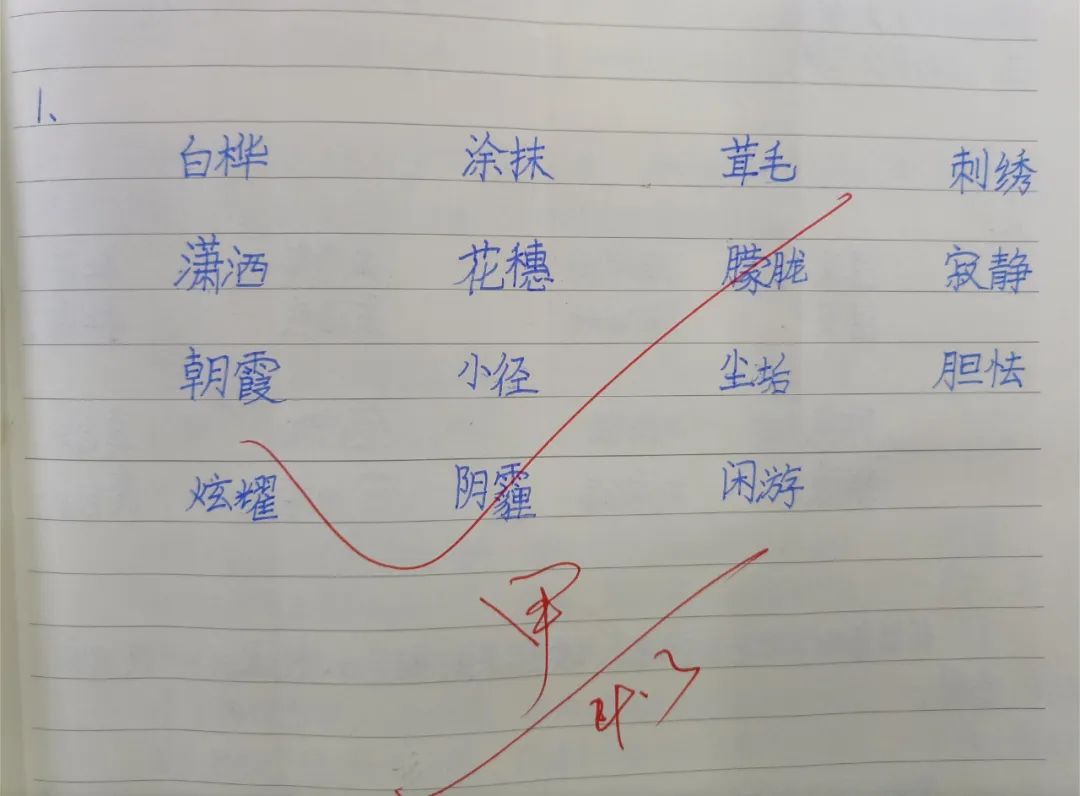 1、
白桦 涂抹 茸毛 刺绣
潇洒 花穗 朦胧 寂静
朝霞 小径 尘垢 胆怯
炫耀 阴霾 闲游
甲
4.3